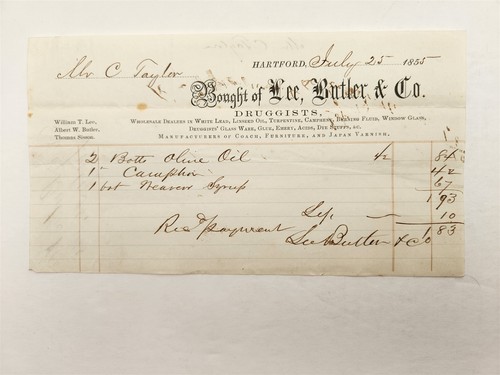 Mr C Taylor
HARTFORD, July 25 1855
Bought of Lee, Butler & Co.
DRUGGISTS,
William T. Lee,
Albert W. Butler,
Thomas Sisson.
WHOLESALE DEALERS IN WHITE LEAD, LINSEED OIL, TURPENTINE, CAMPHENE, BURNING FLUID, WINDOW GLASS,
DRUGGISTS' GLASS WARE, GLUE, EMERY, ACIDS, DYE STUFFS, &C.
MANUFACTURERS OF COACH, FURNITURE, AND JAPAN VARNISH.
2 Botts Olive Oil 42 84
1 " Camphor 42
1 bot Weavers Syrup 67
1 93
10
Rec payment Lee Butler & Co 1 83